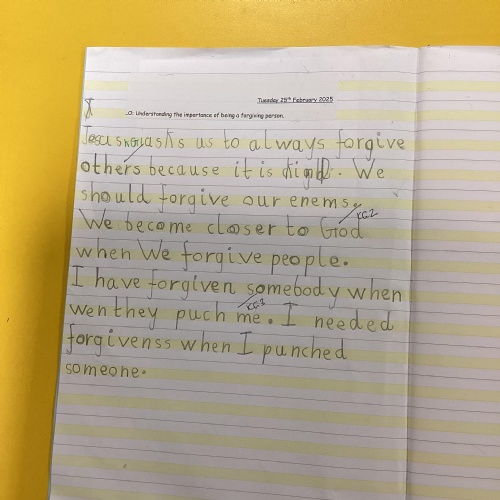 Tuesday 25th February 2025
LO: Understanding the importance of being a forgiving person.
Jesus KG1 asks us to always forgive
others because it is kind. We
should forgive our enems.
KG2
We become closer to God
when We forgive people.
I have forgiven somebody when
KG3
wen they puch me. I needed
forgivenss when I punched
someone.